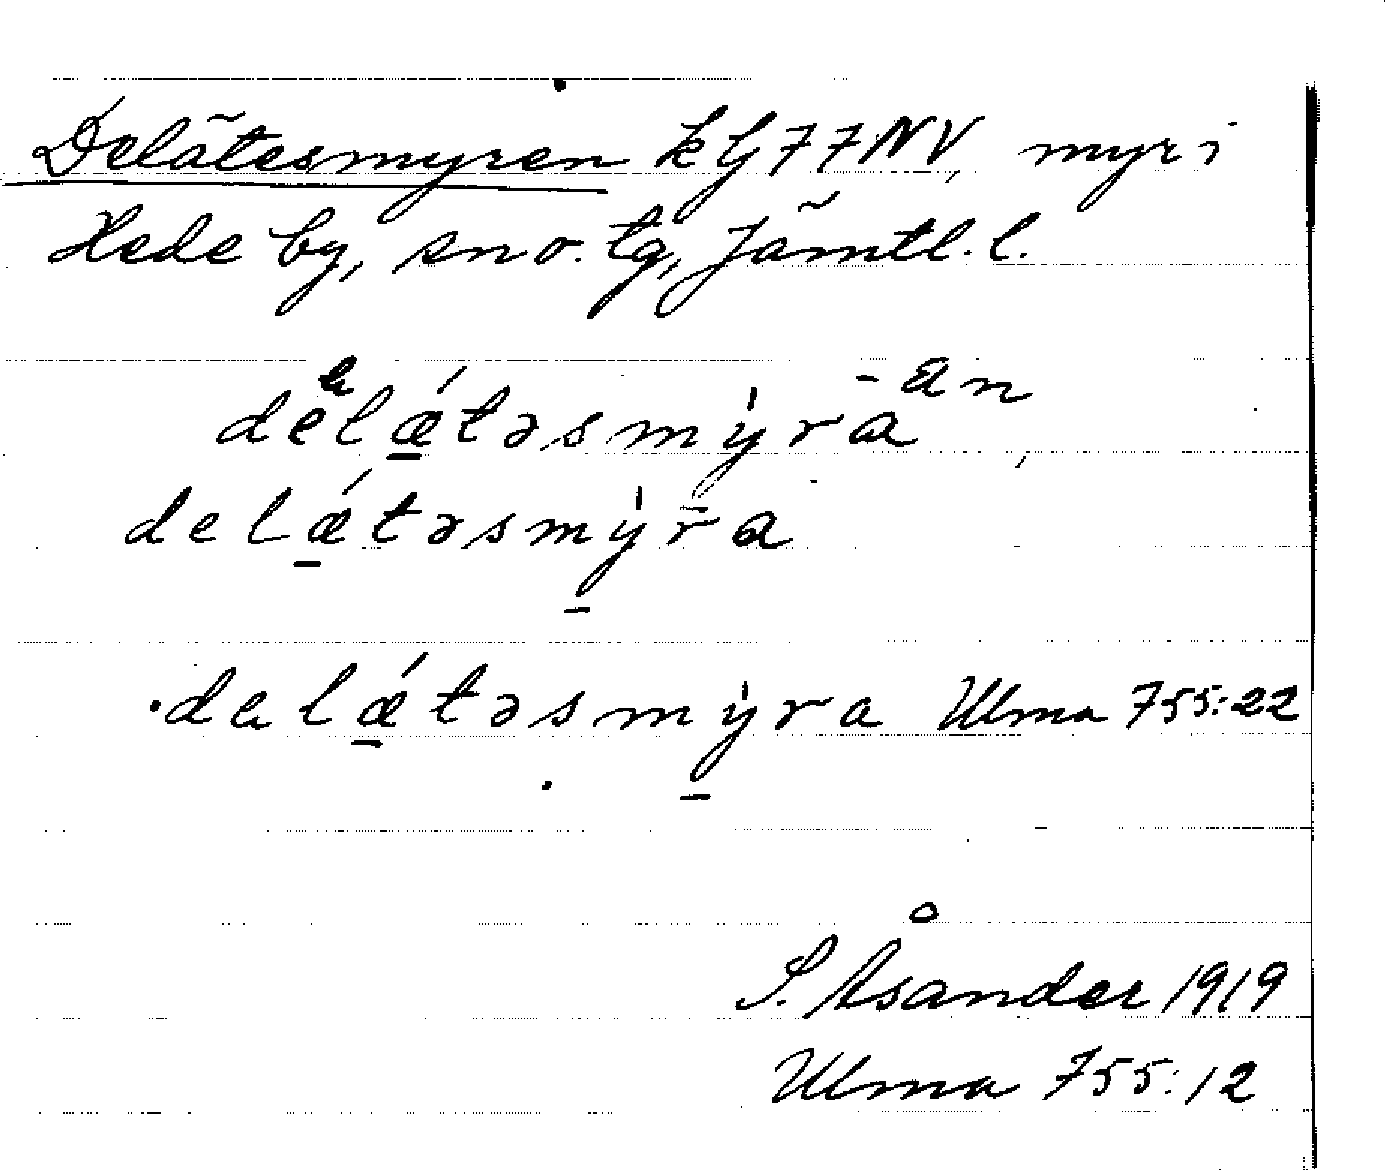 Delätesmyren k lj 77NV, myr i
Hede by, sn o. tg, Jämtl. l.
delǽ̱təsmỳra -an,
delǽ̱təsmỳ̱ra
dalǽ̱təsmỳ̱ra Ulma 755:22
S. Åsander 1919
Ulma 755:12